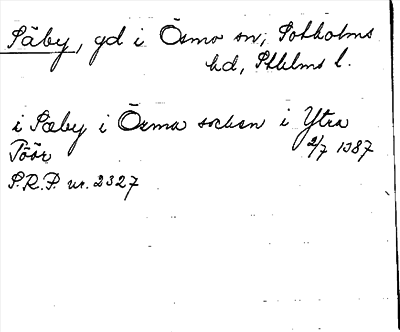 Säby, gd i Ösmo sn, Sotholms
hd, Sthlms l.
i Sæby i Ösmo socken i Ytra
Töör 2/7 1387
S.R.P. nr. 2327